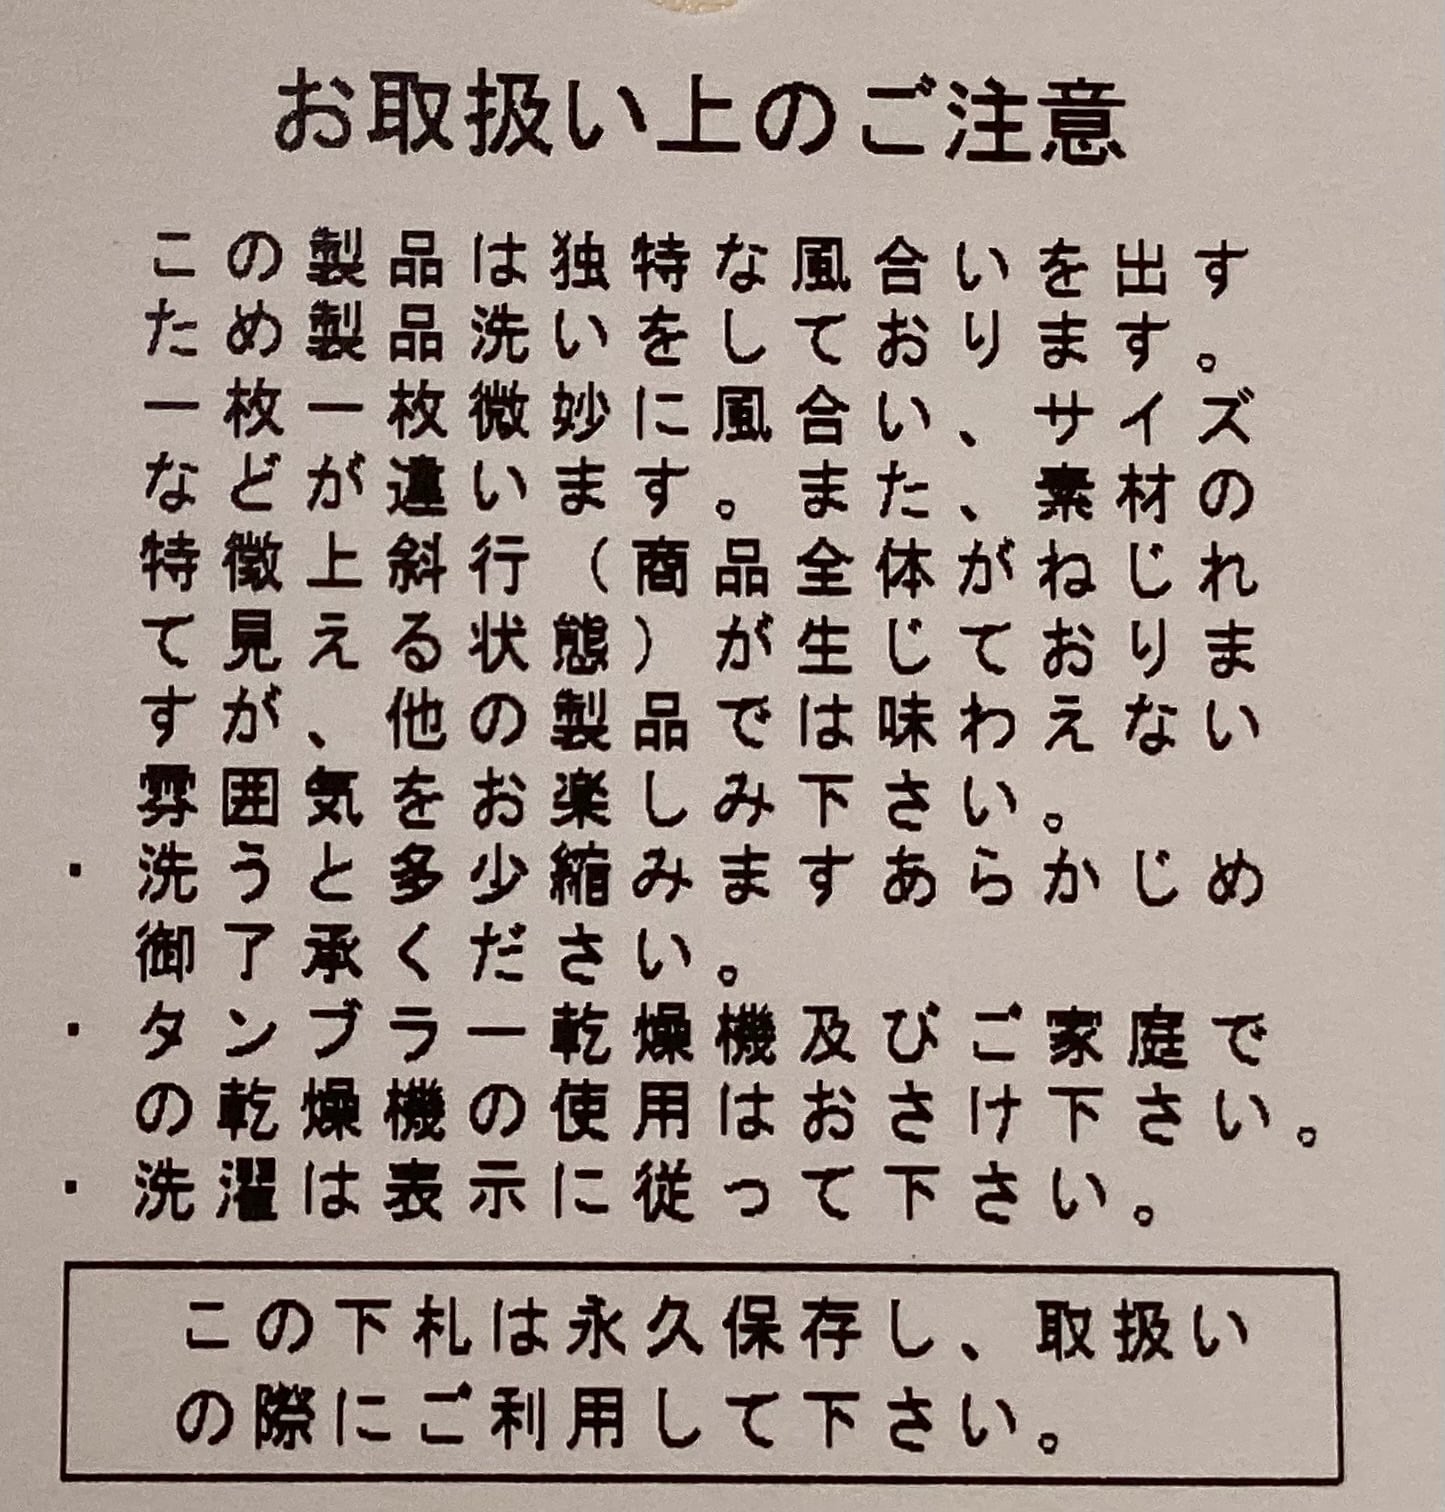 お取扱い上のご注意
この製品は独特な風合いを出す
ため製品洗いをしております。
一枚一枚微妙に風合い、サイズ
などが違います。また、素材の
特徴上斜行（商品全体がねじれ
て見える状態）が生じておりま
すが、他の製品では味わえない
雰囲気をお楽しみ下さい。
・洗うと多少縮みますあらかじめ
御了承ください。
・タンブラー乾燥機及びご家庭で
の乾燥機の使用はおさけ下さい。
・洗濯は表示に従って下さい。
この下札は永久保存し、取扱い
の際にご利用して下さい。